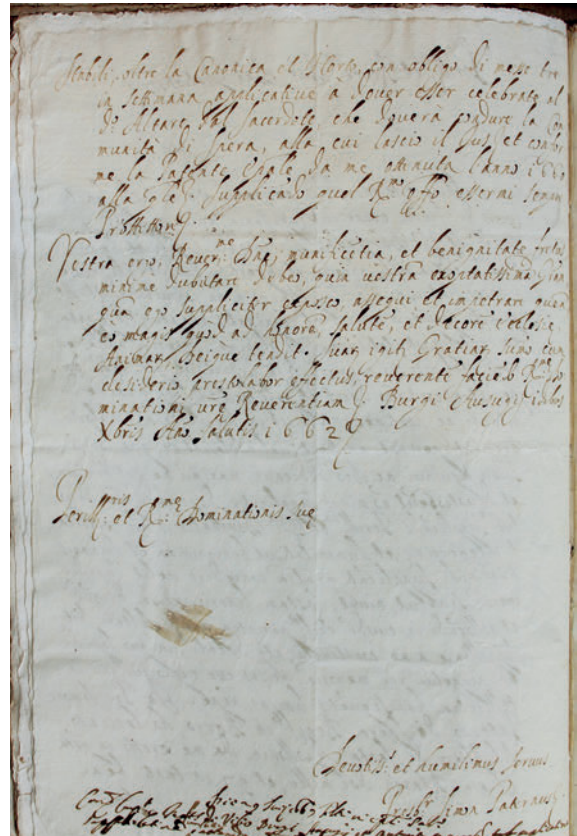 stabili, oltre la Canonica et l'Horto, con obligo di messe tre
in settimana applicative à dover esser celebrate al
do Altare dal sacerdote che doverà godure la Co
munità di Spera, alla cui lascio il Jus, et confor
me la Patente da me ottenuta l'anno 1660
alla supplicado quel Rmo offo essermi sempre
Vestra ergo, Rever: me Dne, munificetia, et benignitate fretus
minime dubitare debeo, quin vestra
qua ego supplicitr exposco, assequi et impetrare
eo magis quod ad honore, salute, et decore ecclesie,
Animar, Deique tendit. suar igitr Gratiar sumo cum
desiderio prestolabor effectus, reverente facieb Rme Do
minationi vre Reverentiam. Burgi Ausugij idibus
Xbris Ano salutis 1662
Perillris et Rme Dominationis sue
Devotiss: et humilimus servus
Presbr Simon Paternus